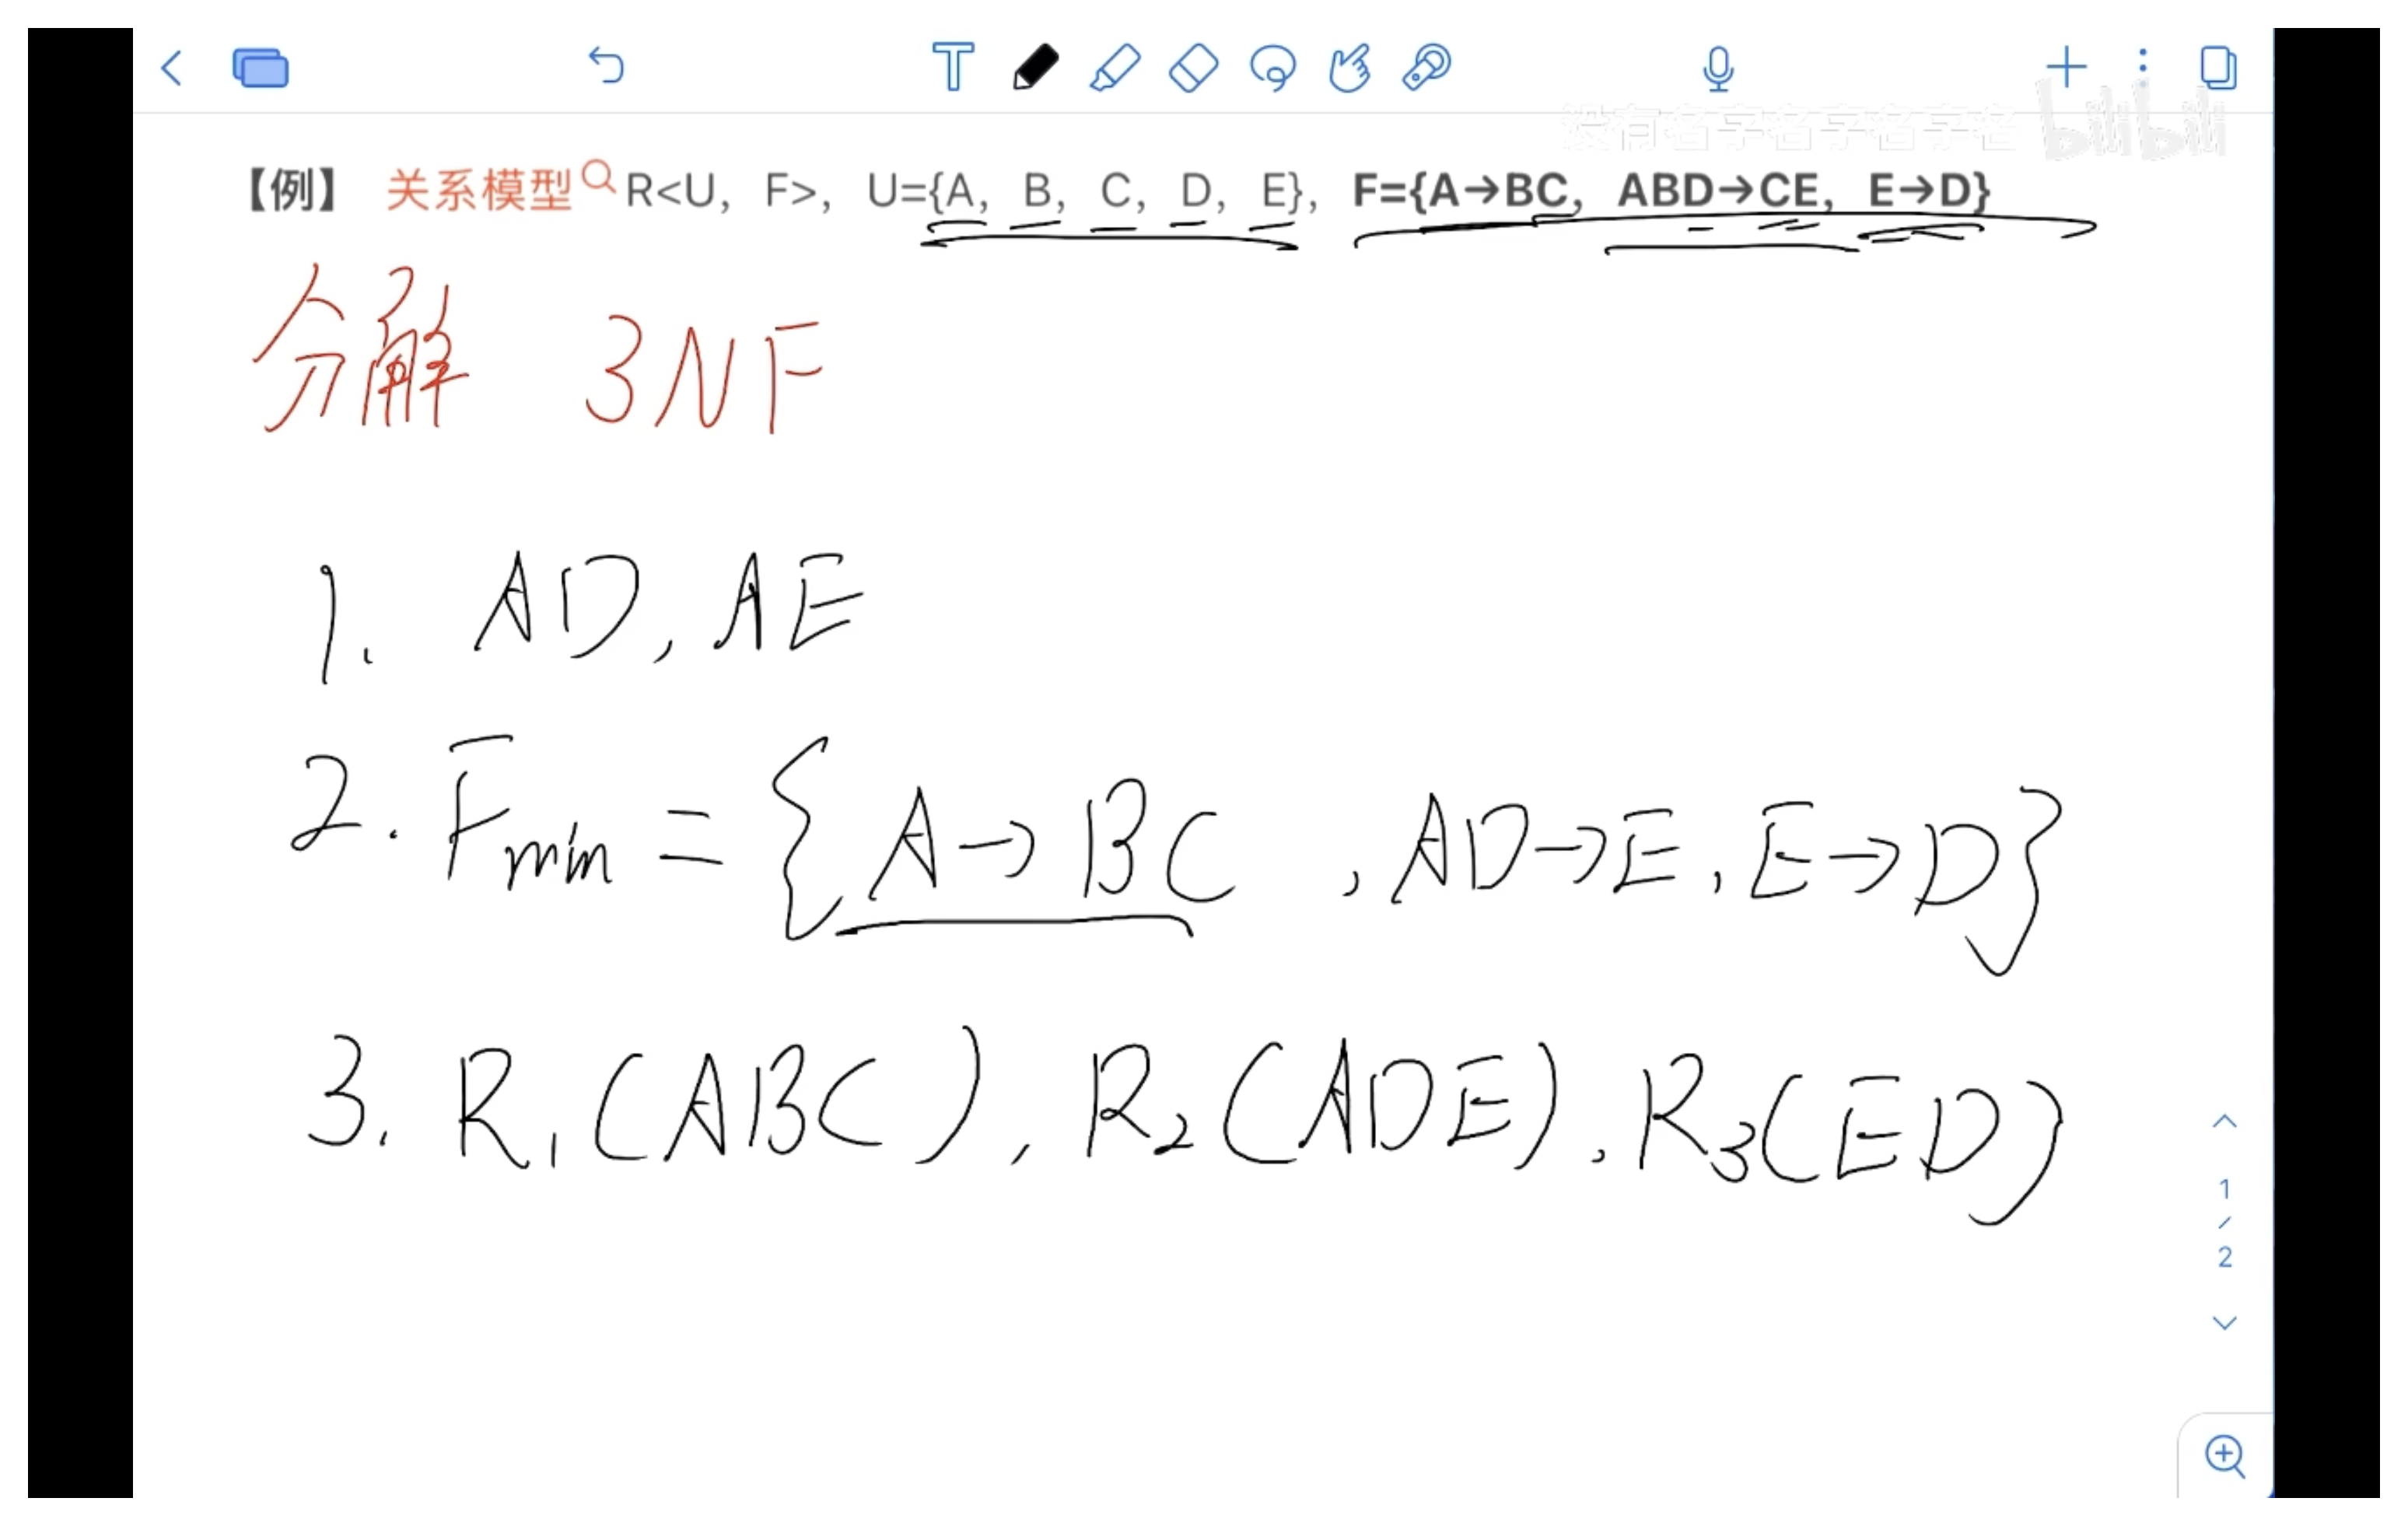 没有名字名字名字名 bilibili
【例】 关系模型 R<U, F>, U={A, B, C, D, E}, F={A→BC, ABD→CE, E→D}
分解 3NF
1. AD, AE
2. Fmin = {A→BC , AD→E, E→D}
3. R1(ABC), R2(ADE), R3(ED)
1
/
2